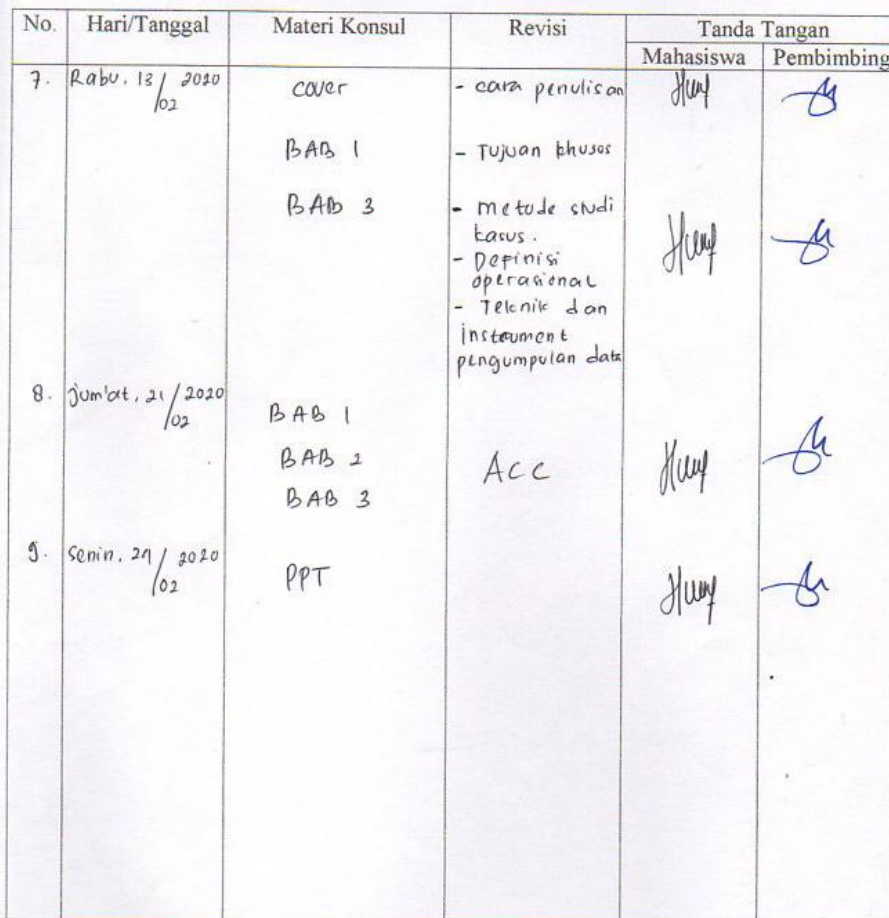 No. Hari/Tanggal Materi Konsul Revisi Tanda Tangan
Mahasiswa Pembimbing
7. Rabu, 13/02 2020 cover - cara penulisan
BAB 1 - Tujuan khusus
BAB 3 - metode studi
kasus.
- Definisi
operasional
- Teknik dan
instrument
pengumpulan data
8. Jum'at, 21/02 2020
BAB 1
BAB 2 ACC
BAB 3
9. Senin, 24/02 2020
PPT